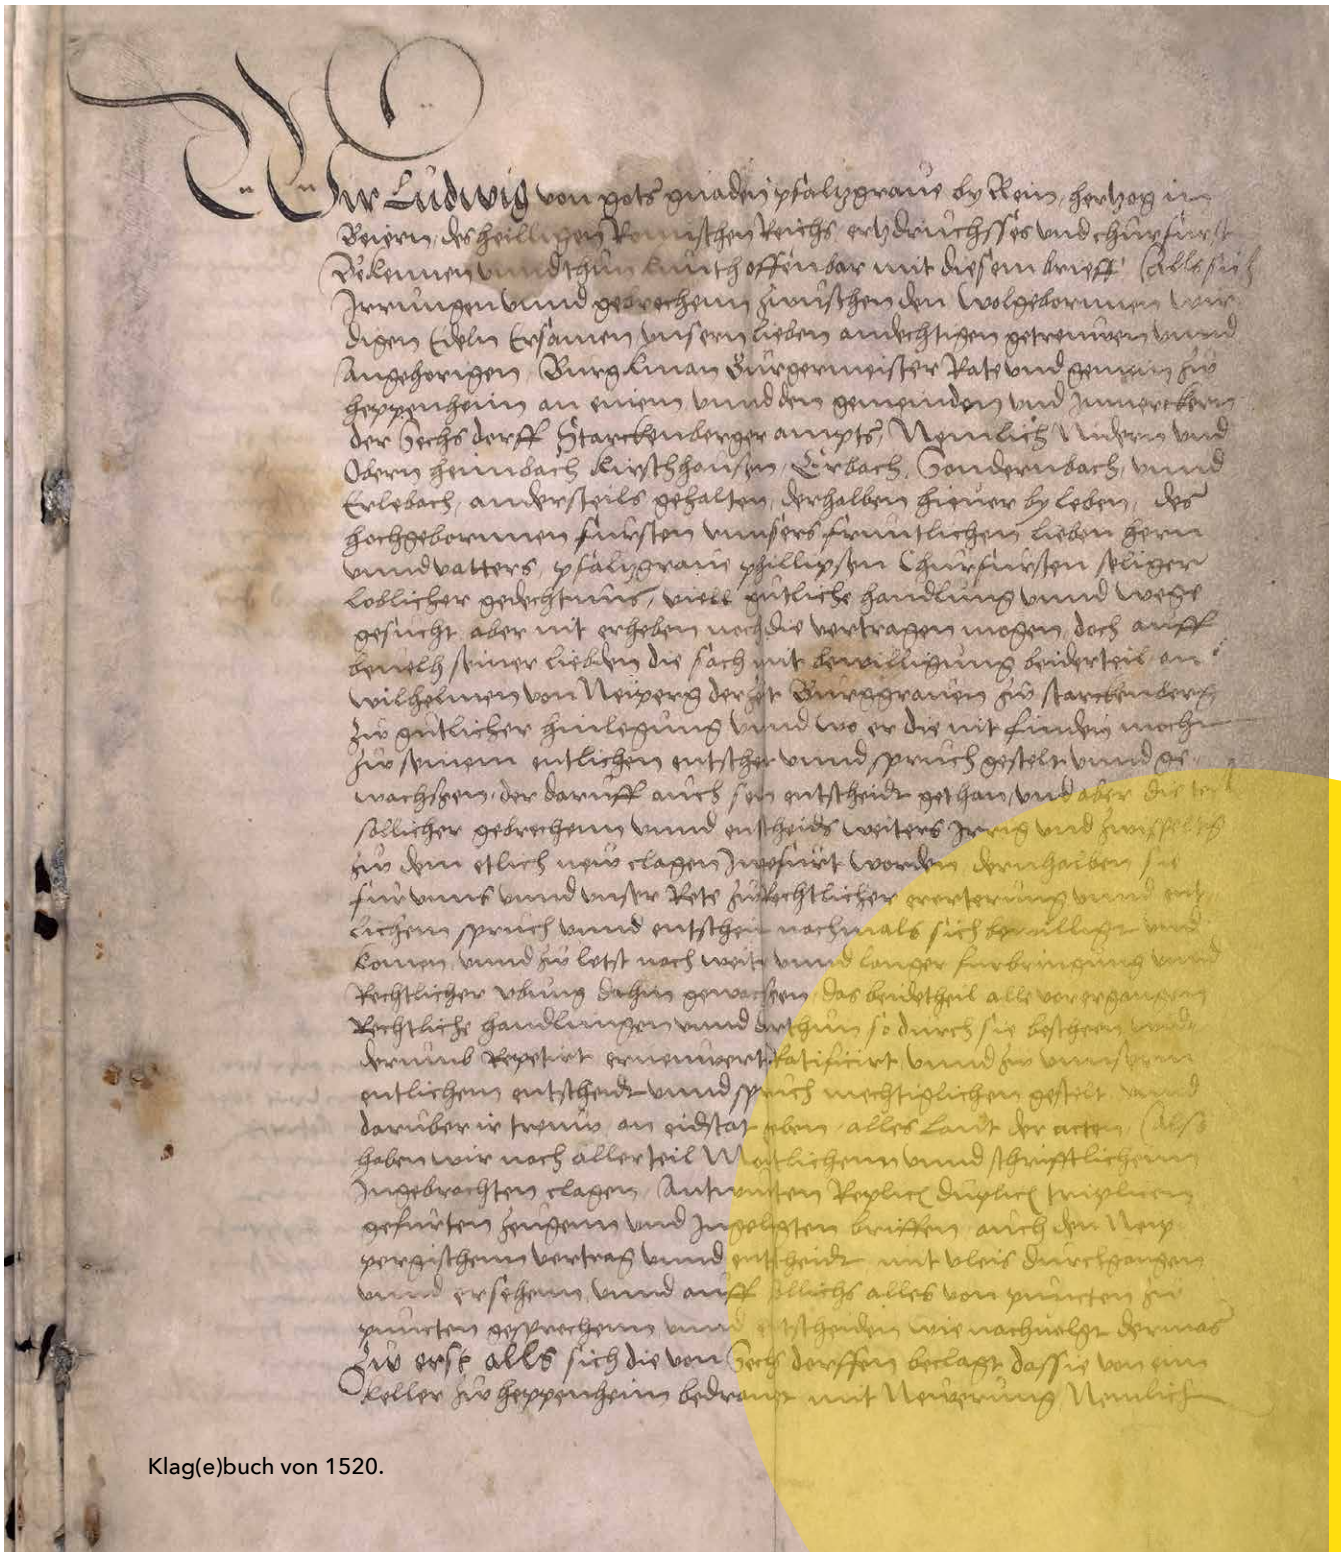 Wir Ludwig von gots gnaden pfaltzgrave by Rein, hertzog in
Beiern, des heilligen Romischen Reichs ertzdruchsses und churfurst
Bekennen unnd thun kunth offenbar mit diesem brieff Alls sich
Irrungen unnd gebrechenn zwuschen den wolgebornnen wir
digen Edeln Ersamen unsern lieben andechtigen getreuwen unnd
Angehorigen, Burgkman Burgermeister Rate und gemein zu
heppenheim an einem unnd den gemeinden und Inmerckern
der Sechs dorff Starckenberger ampts, Nemlich Nidern und
Obern heimbach kirschhausen, Erbach, Sondernbach, unnd
Erlebach, andersteils gehalten, derhalben hieuer by leben, des
hochgebornnen fursten unnsers fruntlichen lieben hern
unnd vatters, pfaltzgraue phillipsen Churfursten seliger
loblicher gedechtnus, viell gutliche handlung unnd wege
gesucht aber nit erheben noch die vertragen mogen, doch auff
beuelh seiner liebden die sach mit bewilligung beiderteil an
wilhelmen von Neiperg derzeit Burggrauen zu starckenberg
zu gutlicher hinlegung unnd wo er die nit finden mocht
zu seinem entlichen entscheit unnd spruch gestelt unnd ge
wachssen, der daruff auch sein entscheidt gethan, und aber die teil
sollicher gebrechenn unnd entscheids weiters Irrig und zwiffeltig
zu dem etlich new clagen Ingefurt worden, dernhalben sie
fur unns unnd unser Rete zu Rechtlicher erorterung unnd ent
lichem spruch unnd entscheit nachmals sich bewilligt und
komen, unnd zu letst nach weiter unnd langer furbringung unnd
Rechtlicher ubung dahin gewachssen, das beidetheil alle vorergangen
Rechtliche handlungen unnd so durch sie bescheen
dernmb Repetirt ernnewert Ratificirt unnd zu unnserm
entlichem entscheidt unnd spruch mechtiglichen gestelt unnd
daruber ir treuw an eidstat geben, alles laut der acten, Also
haben wir nach allerteil Montlichenn unnd schrifftlichenn
Ingebrachten clagen, Antwurten Replick duplick triplicen
gefurten zeugenn und Ingelegten brieffen, auch den Neip
pergischenn vertrag unnd entscheidt mit vleis durchgangen
unnd ersehenn, unnd auff sollichs alles von puncten zu
puncten gesprochenn unnd entscheiden wie nachuolgt dermas
Zu erst alls sich die von Sechs dorffen beclagt das sie von eim
keller zu heppenheim bedrangt mit Newerung Nemlich
Klag(e)buch von 1520.